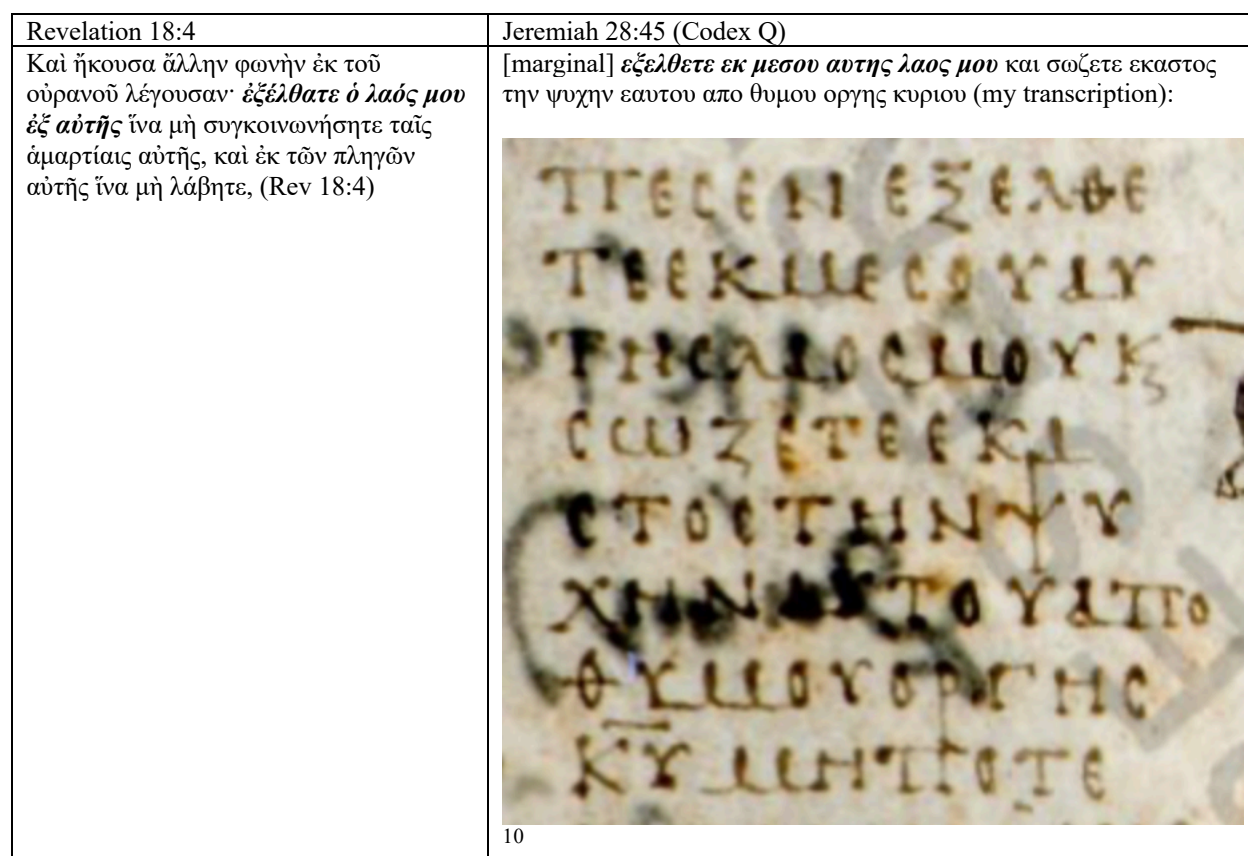 Revelation 18:4
Καὶ ἤκουσα ἄλλην φωνὴν ἐκ τοῦ
οὐρανοῦ λέγουσαν· ἐξέλθατε ὁ λαός μου
ἐξ αὐτῆς ἵνα μὴ συγκοινωνήσητε ταῖς
ἁμαρτίαις αὐτῆς, καὶ ἐκ τῶν πληγῶν
αὐτῆς ἵνα μὴ λάβητε, (Rev 18:4)
Jeremiah 28:45 (Codex Q)
[marginal] εξελθετε εκ μεσου αυτης λαος μου και σωζετε εκαστος
την ψυχην εαυτου απο θυμου οργης κυριου (my transcription):
ΠΕСΕΝ ΕΞΕΛΘΕ
ΤΕΕΚΜΕСΟΥΑΥ
ΤΗСΛΑΟСΜΟΥΚ
СΩΖΕΤΕΕΚΑ
СΤΟСΤΗΝΨΥ
ΧΗΝ ΤΟΥΑΠΟ
ΘΥΜΟΥΟΡΓΗС
ΚΥ ΜΗΠΟΤΕ
10